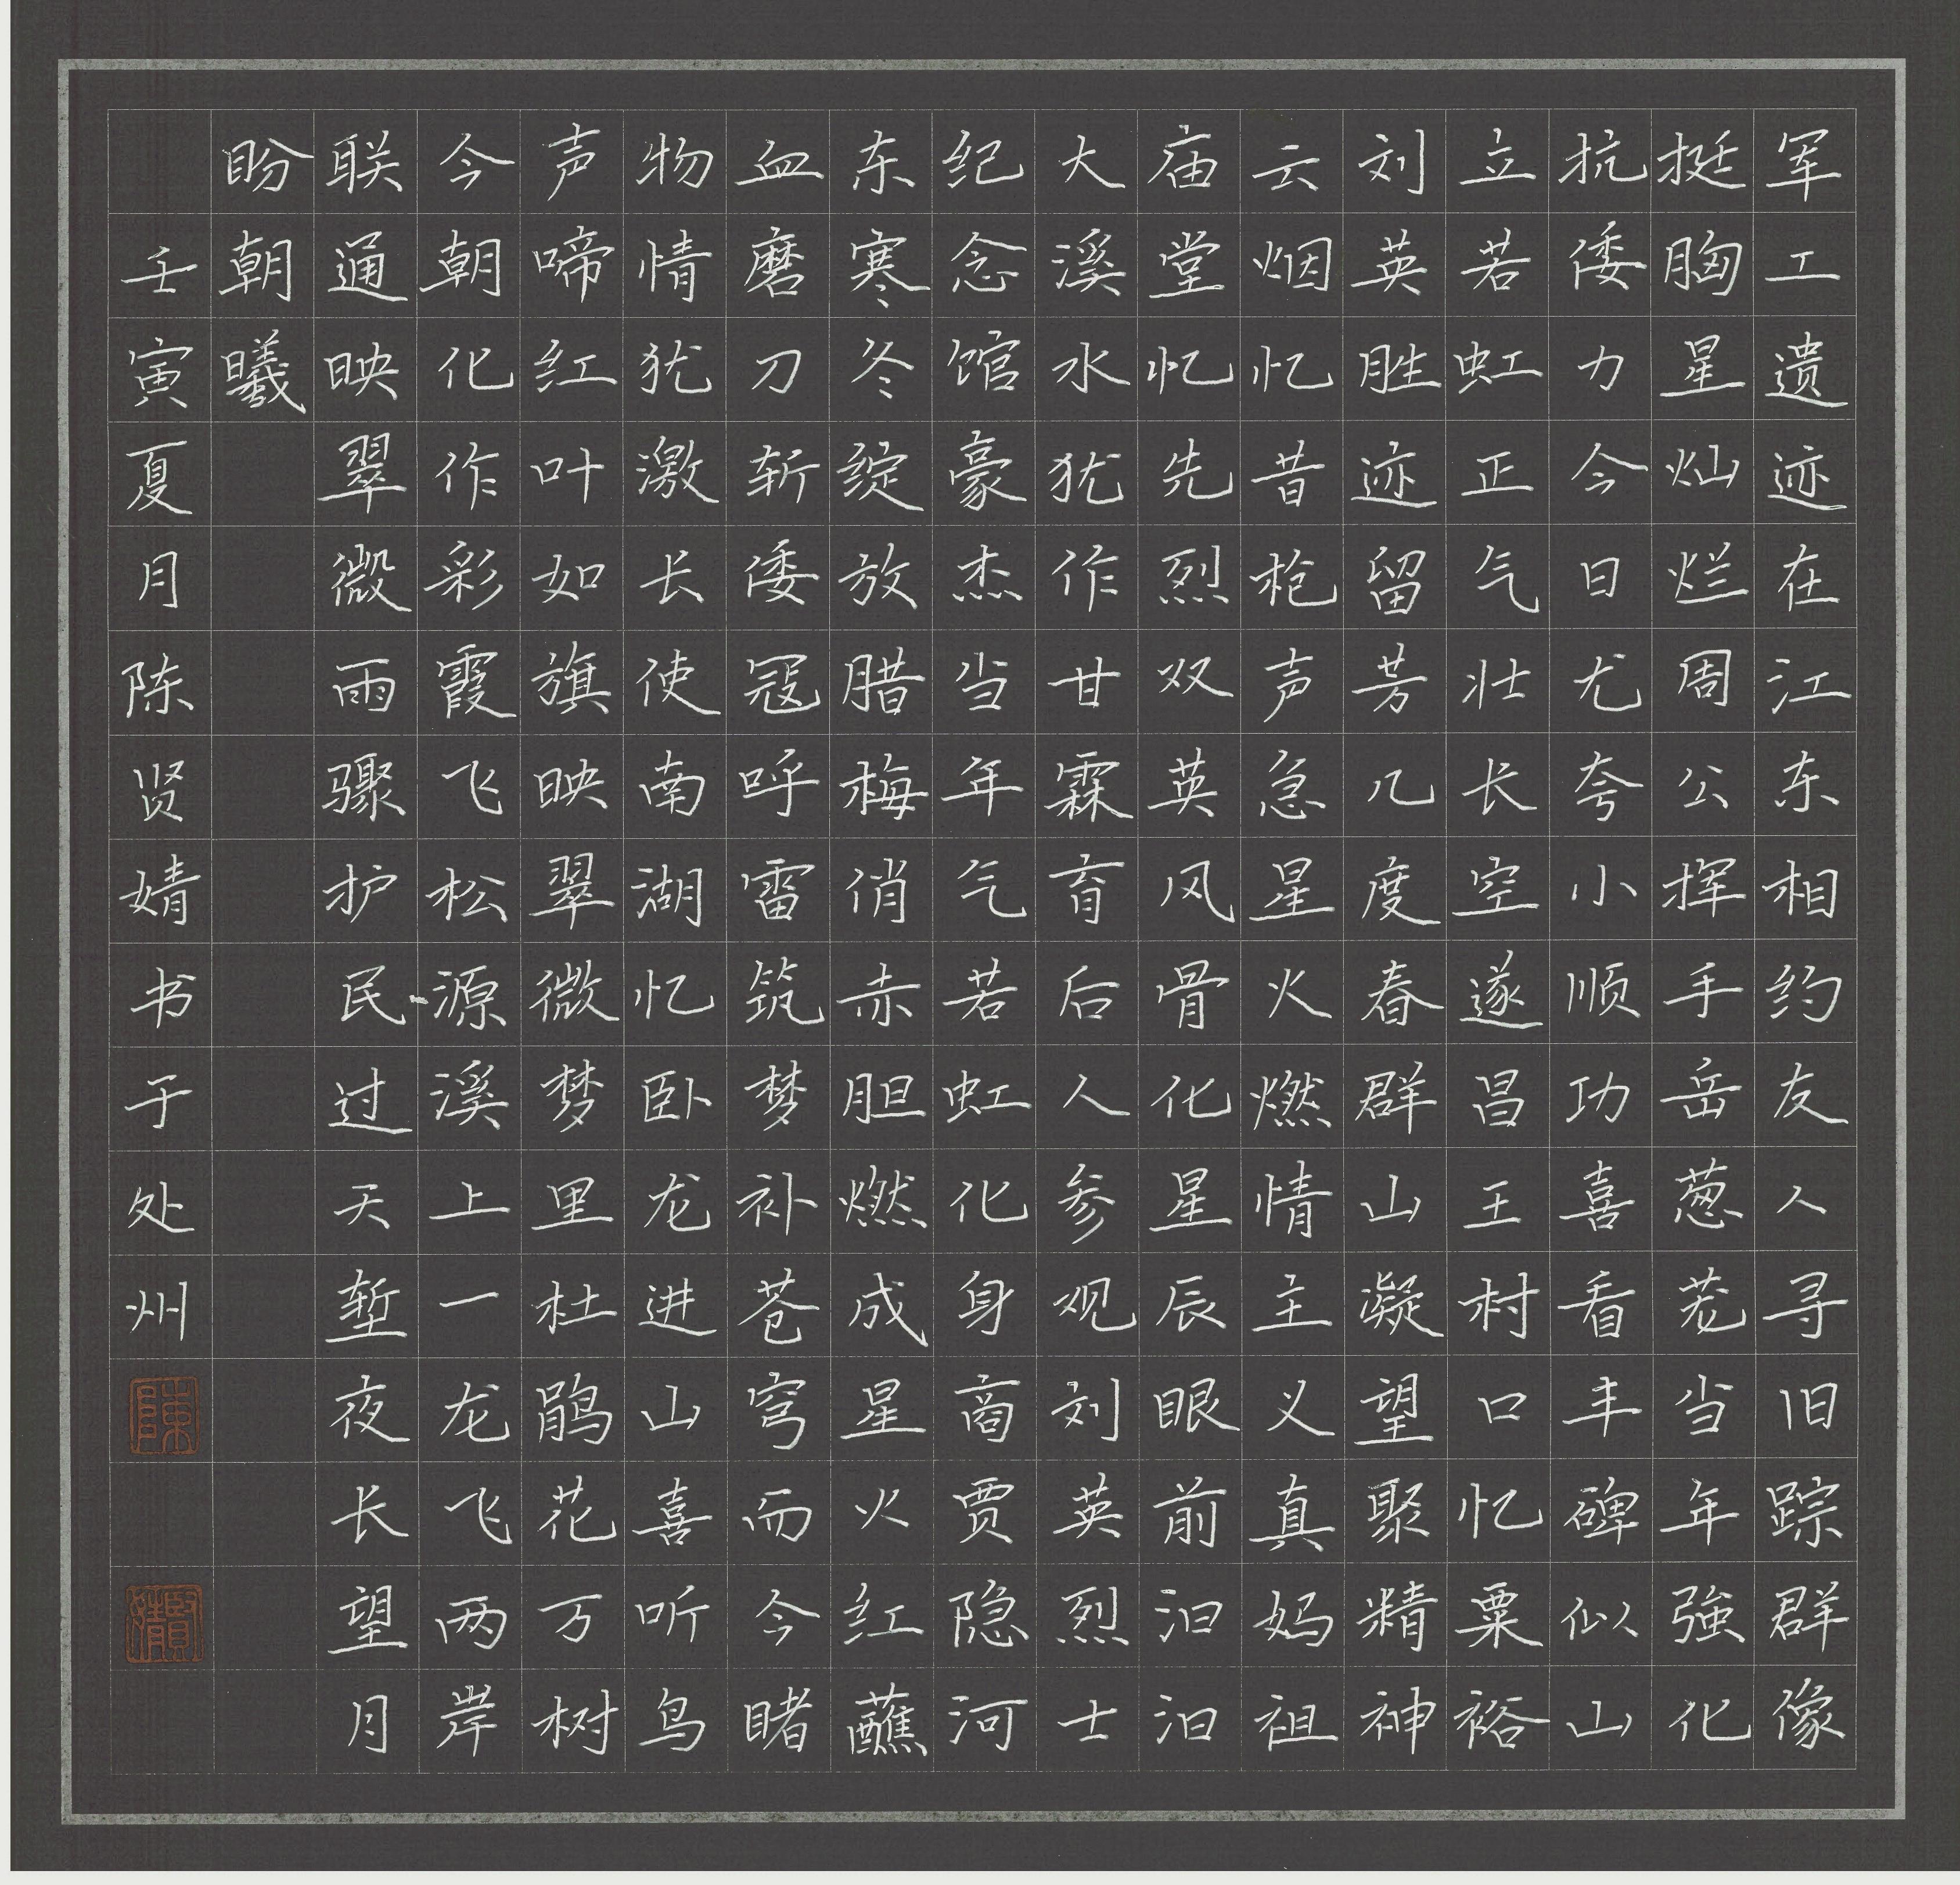 军工遗迹在江东相约友人寻旧踪群像
挺胸星灿烂周公挥手岳葱茏当年強化
抗倭力今日尤夸小顺功喜看丰碑似山
立若虹正气壮长空遂昌王村口忆粟裕
刘英胜迹留芳几度春群山凝望聚精神
云烟忆昔枪声急星火燃情主义真妈祖
庙堂忆先烈双英风骨化星辰眼前汩汩
大溪水犹作甘霖育后人参观刘英烈士
纪念馆豪杰当年气若虹化身商贾隐河
东寒冬绽放腊梅俏赤胆燃成星火红蘸
血磨刀斩倭冦呼雷筑梦补苍穹而今睹
物情犹激长使南湖忆卧龙进山喜听鸟
声啼红叶如旗映翠微梦里杜鹃花万树
今朝化作彩霞飞松源溪上一龙飞两岸
联通映翠微雨骤护民过天堑夜长望月
盼朝曦
壬寅夏月陈贤婧书于处州
陳
賢婧